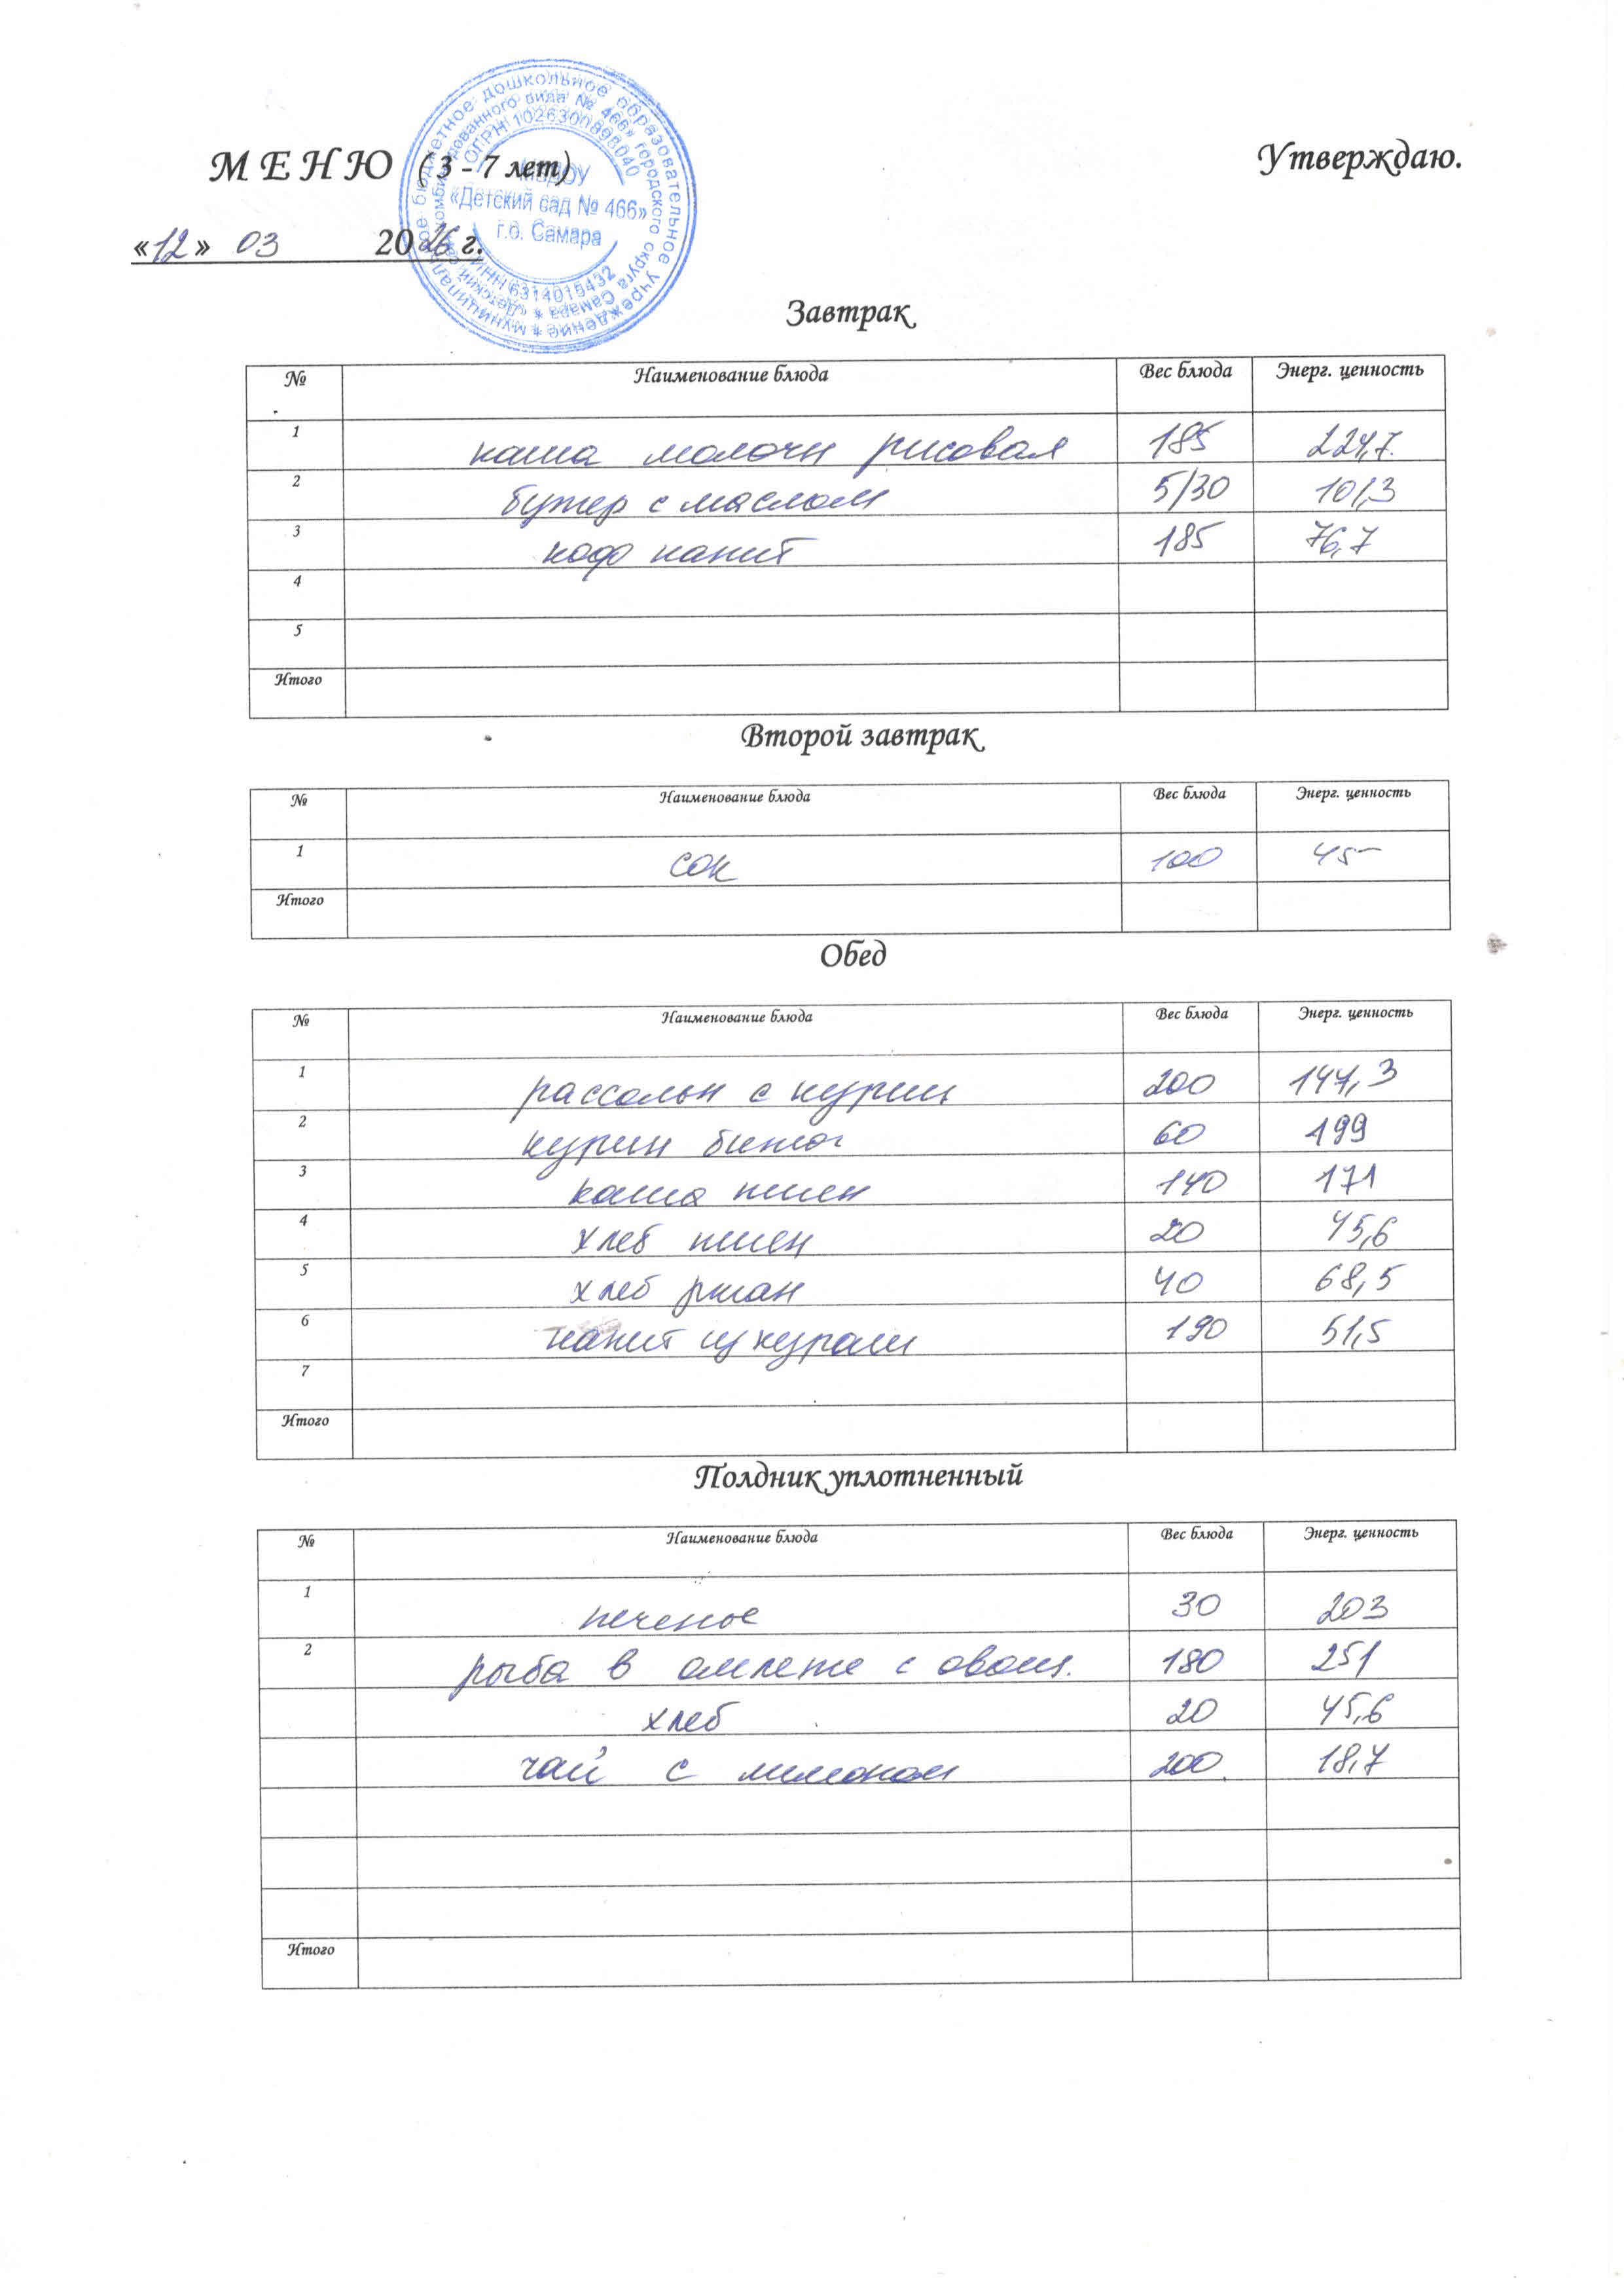 МЕНЮ (3 - 7 лет)
Утверждаю.
«12» 03 2026 г.
муниципальное бюджетное дошкольное образовательное учреждение
комбинированного вида № 466» городского округа Самара * «Детский сад
ОГРН 1026300898040
МБДОУ
«Детский сад № 466»
г.о. Самара
ИНН 6314015432
Завтрак
№ Наименование блюда Вес блюда Энерг. ценность
1 каша молочн рисовая 185 224,7
2 бутер с маслом 5/30 101,3
3 кофе напит 185 76,7
4
5
Итого
Второй завтрак
№ Наименование блюда Вес блюда Энерг. ценность
1 сок 100 45-
Итого
Обед
№ Наименование блюда Вес блюда Энерг. ценность
1 рассольн с куриц 200 147,3
2 курин биточ 60 199
3 каша пшен 140 171
4 хлеб пшен 20 45,6
5 хлеб ржан 40 68,5
6 напит из кураги 190 51,5
7
Итого
Полдник уплотненный
№ Наименование блюда Вес блюда Энерг. ценность
1 печенье 30 203
2 рыба в омлете с овощ. 180 251
хлеб 20 45,6
чай с лимоном 200 18,7
Итого